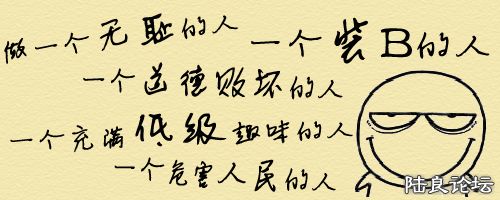 做一个无耻的人
一个装B的人
一个道德败坏的人
一个充满低级趣味的人
一个危害人民的人
陆良论坛